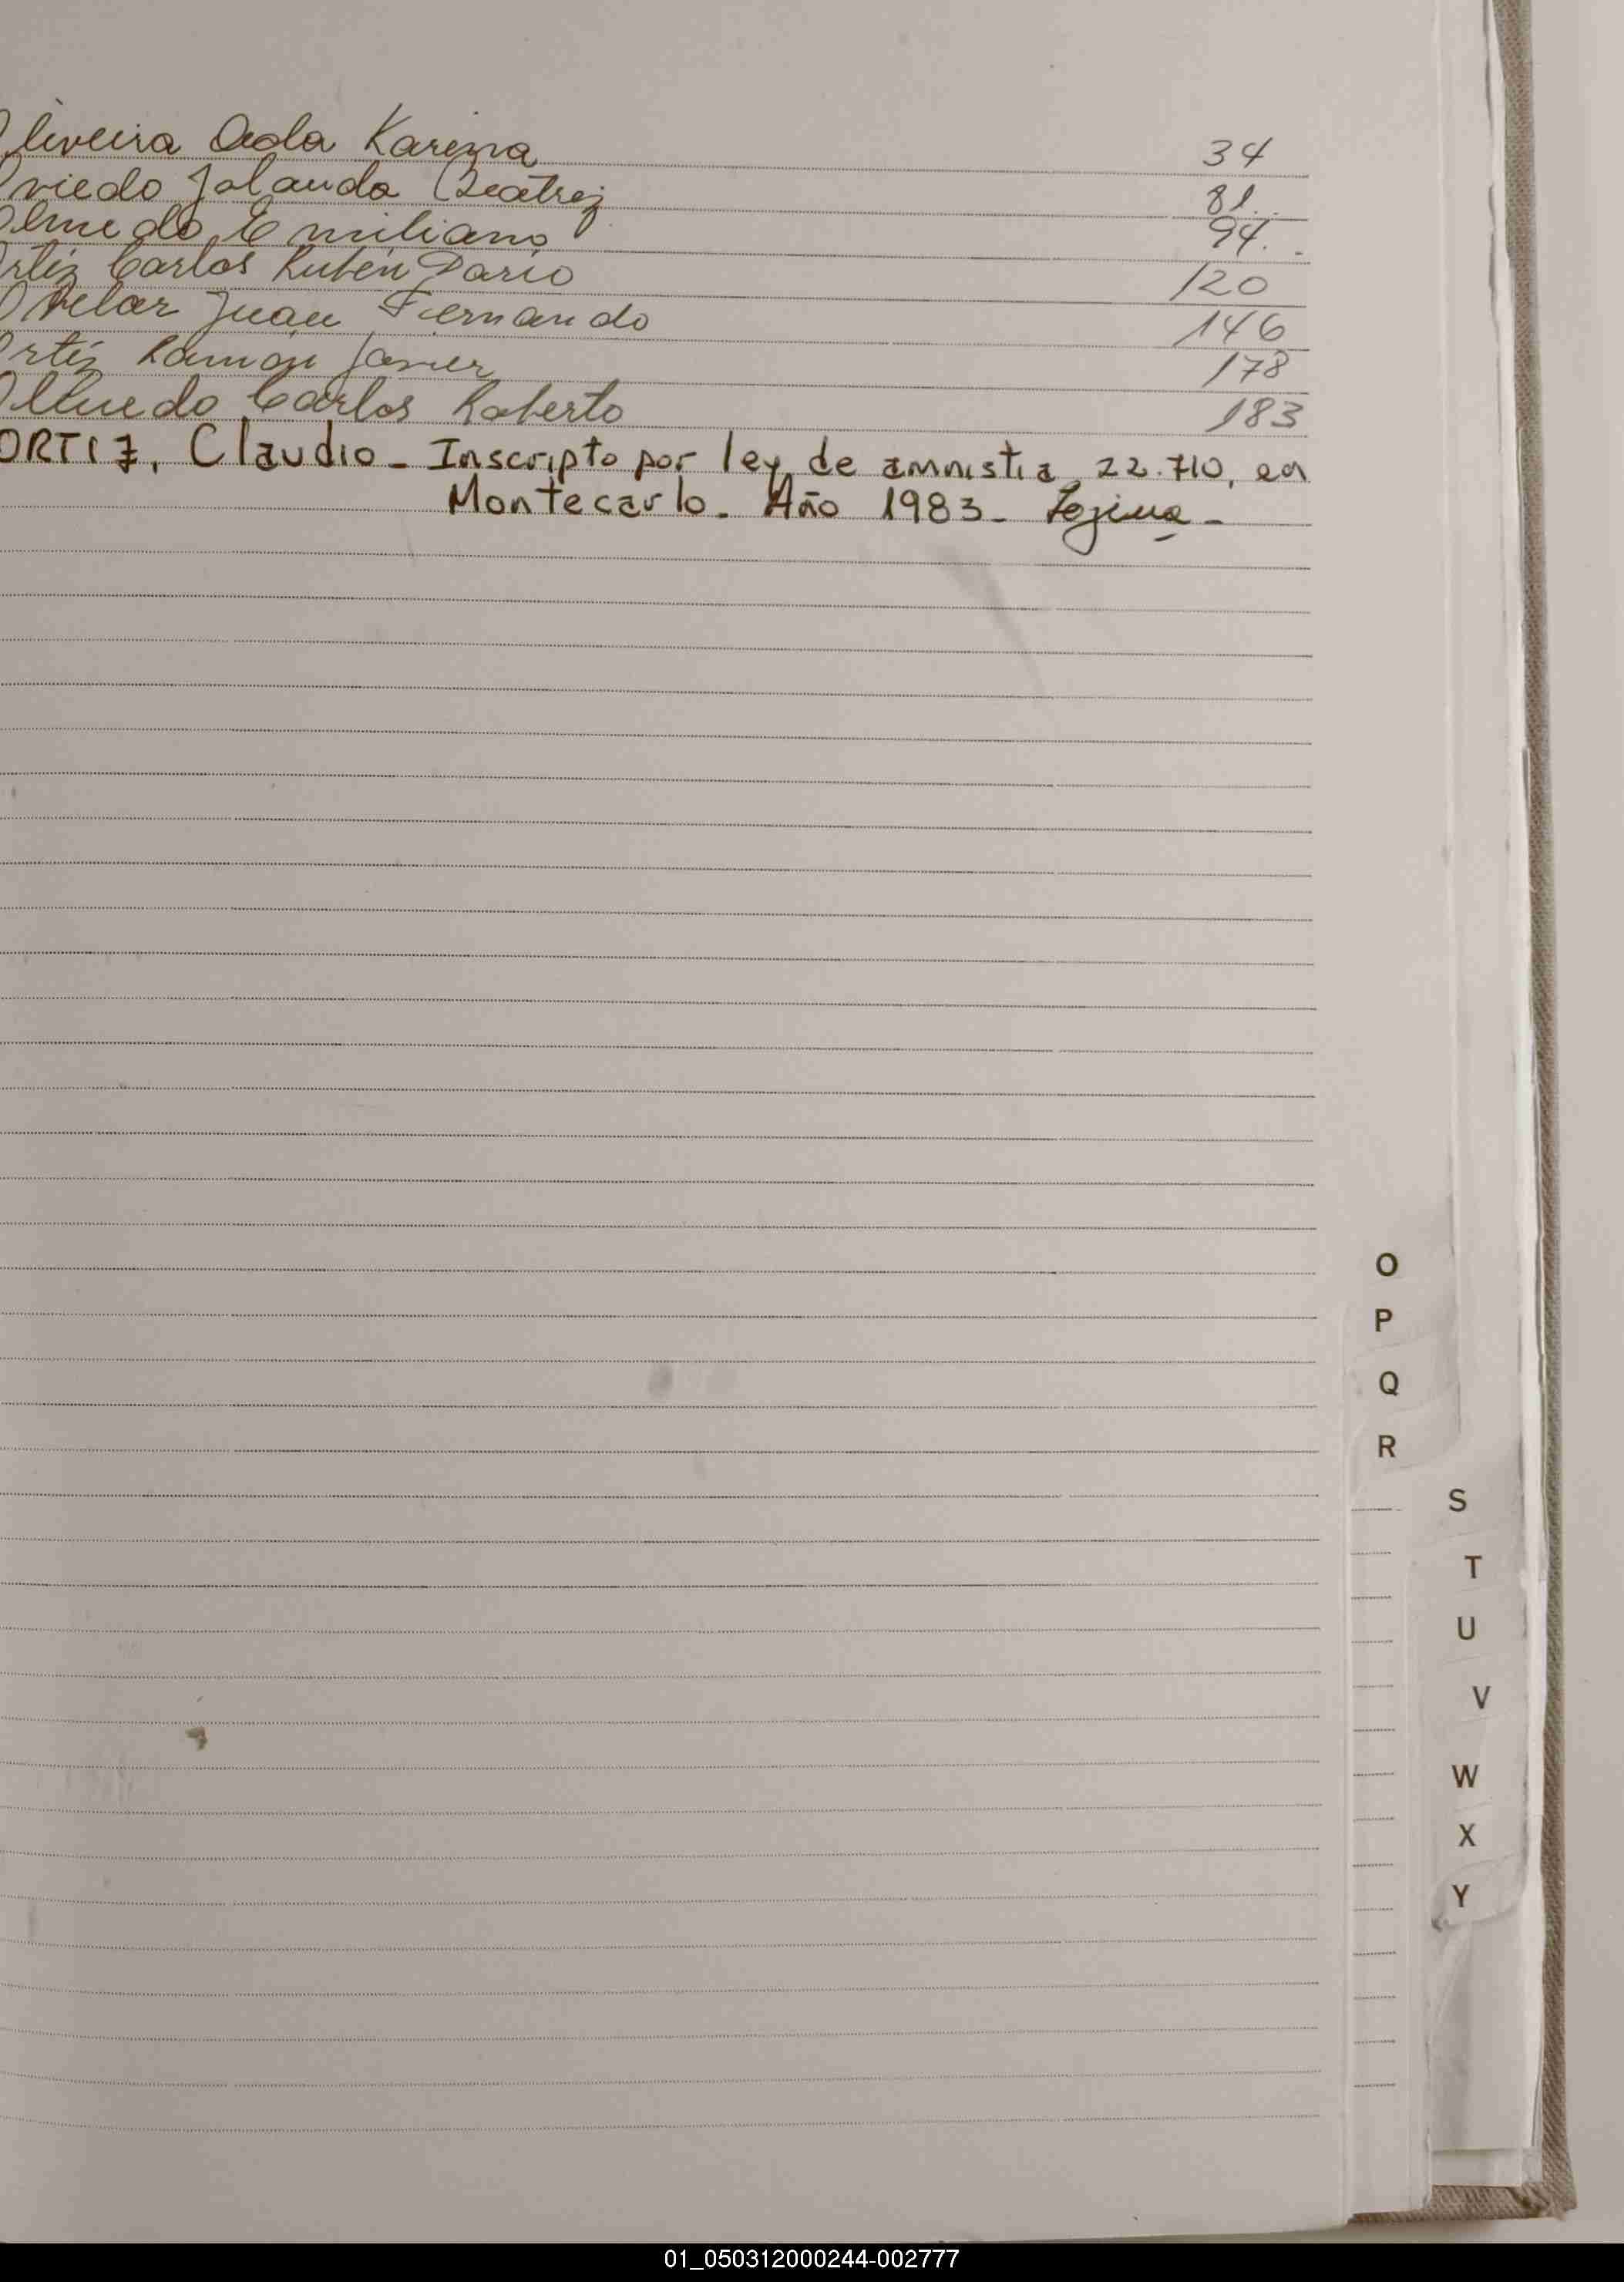 Oliveira Aida Karina 34
Oviedo Jolanda Beatriz 81.
Olmedo Emiliano 94.
Ortiz Carlos Rubén Dario 120
Ovelar Juan Fernando 146
Ortiz Ramón Javier 178
Olmedo Carlos Roberto 183
ORTIZ, Claudio - Inscripto por ley de amnistia 22.710, en
Montecarlo. Año 1983 -
O
P
Q
R
S
T
U
V
W
X
Y
01_050312000244-002777